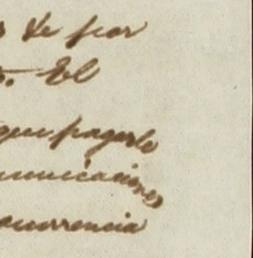 de por
. El
que pagarle
municaciones
ocurrencia